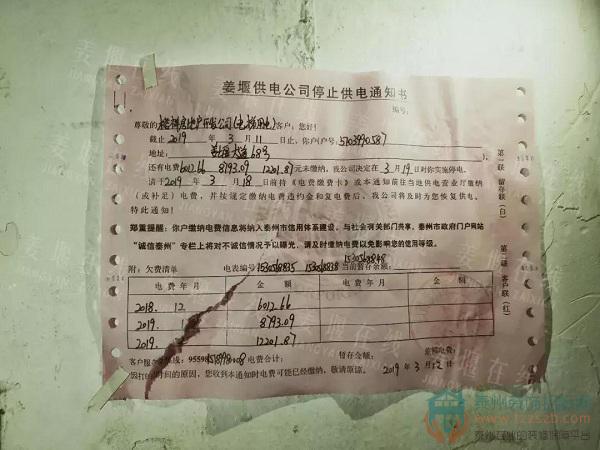 姜堰供电公司停止供电通知书
编号:
尊敬的 房地产开发公司(电梯用电)客户:您好!
截止2019年3月11日,你户(户号:5703990587
地址: 大道68号 )
还有电费6012.66 8793.09 12201.87元未缴纳,我公司决定在3月19日对你实施停电。
请于2019年3月18日前持《电费缴费卡》或本通知前往当地供电营业厅缴纳
(或补足)电费,并按规定缴纳电费违约金和复电费后,我公司将及时为您恢复供电。
特此通知!
郑重提醒:你户缴纳电费信息将纳入泰州市信用体系建设,与社会有关部门共享,泰州市政府门户网站
“诚信泰州”专栏上将对不诚信情况予以曝光,请及时缴纳电费以免影响您的信用等级。
1530568848
附:欠费清单 电表编号1530568835 1530568838当前暂存余额:
电费年月 金额 电费年月 金额
2018.12 6012.66
2019. 8793.09
2019. 12201.87
客户服务热线:95598 电费合计: 暂存金额: 差额电费:
因打印时间的原因,您收到本通知时电费可能已经缴纳,敬请原谅。 2019年3月12日
第一联 留存联(白)
第二联 客户联(红)
姜堰在线
www.tzzszb.com